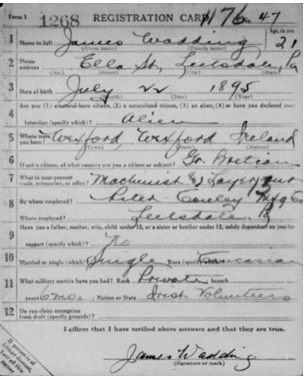 Form 1 1268 REGISTRATION CARD 476 47
1 Name in full James Wadding Age, in yrs. 21
(Given name) (Family name)
2 Home address Ella St, Leetsdale, Pa
(No.) (Street) (City) (State)
3 Date of birth July 22 1895
(Month) (Day) (Year)
4 Are you (1) a natural-born citizen, (2) a naturalized citizen, (3) an alien, (4) or have you declared your
intention (specify which)? Alien
5 Where were you born? Wexford, Wexford Ireland
(Town) (State) (Nation)
6 If not a citizen, of what country are you a citizen or subject? Gr. Britian
7 What is your present trade, occupation, or office? Machinist
8 By whom employed? Conley Mfg Co
Where employed? Leetsdale Pa
9 Have you a father, mother, wife, child under 12, or a sister or brother under 12, solely dependent on you for
support (specify which)? No
10 Married or single (which)? Single Race (specify which)? Caucasian
11 What military service have you had? Rank Private branch
years 6 mos. ; Nation or State Irish Volunteers
12 Do you claim exemption from draft (specify grounds)?
I affirm that I have verified above answers and that they are true.
James Wadding
(Signature or mark)